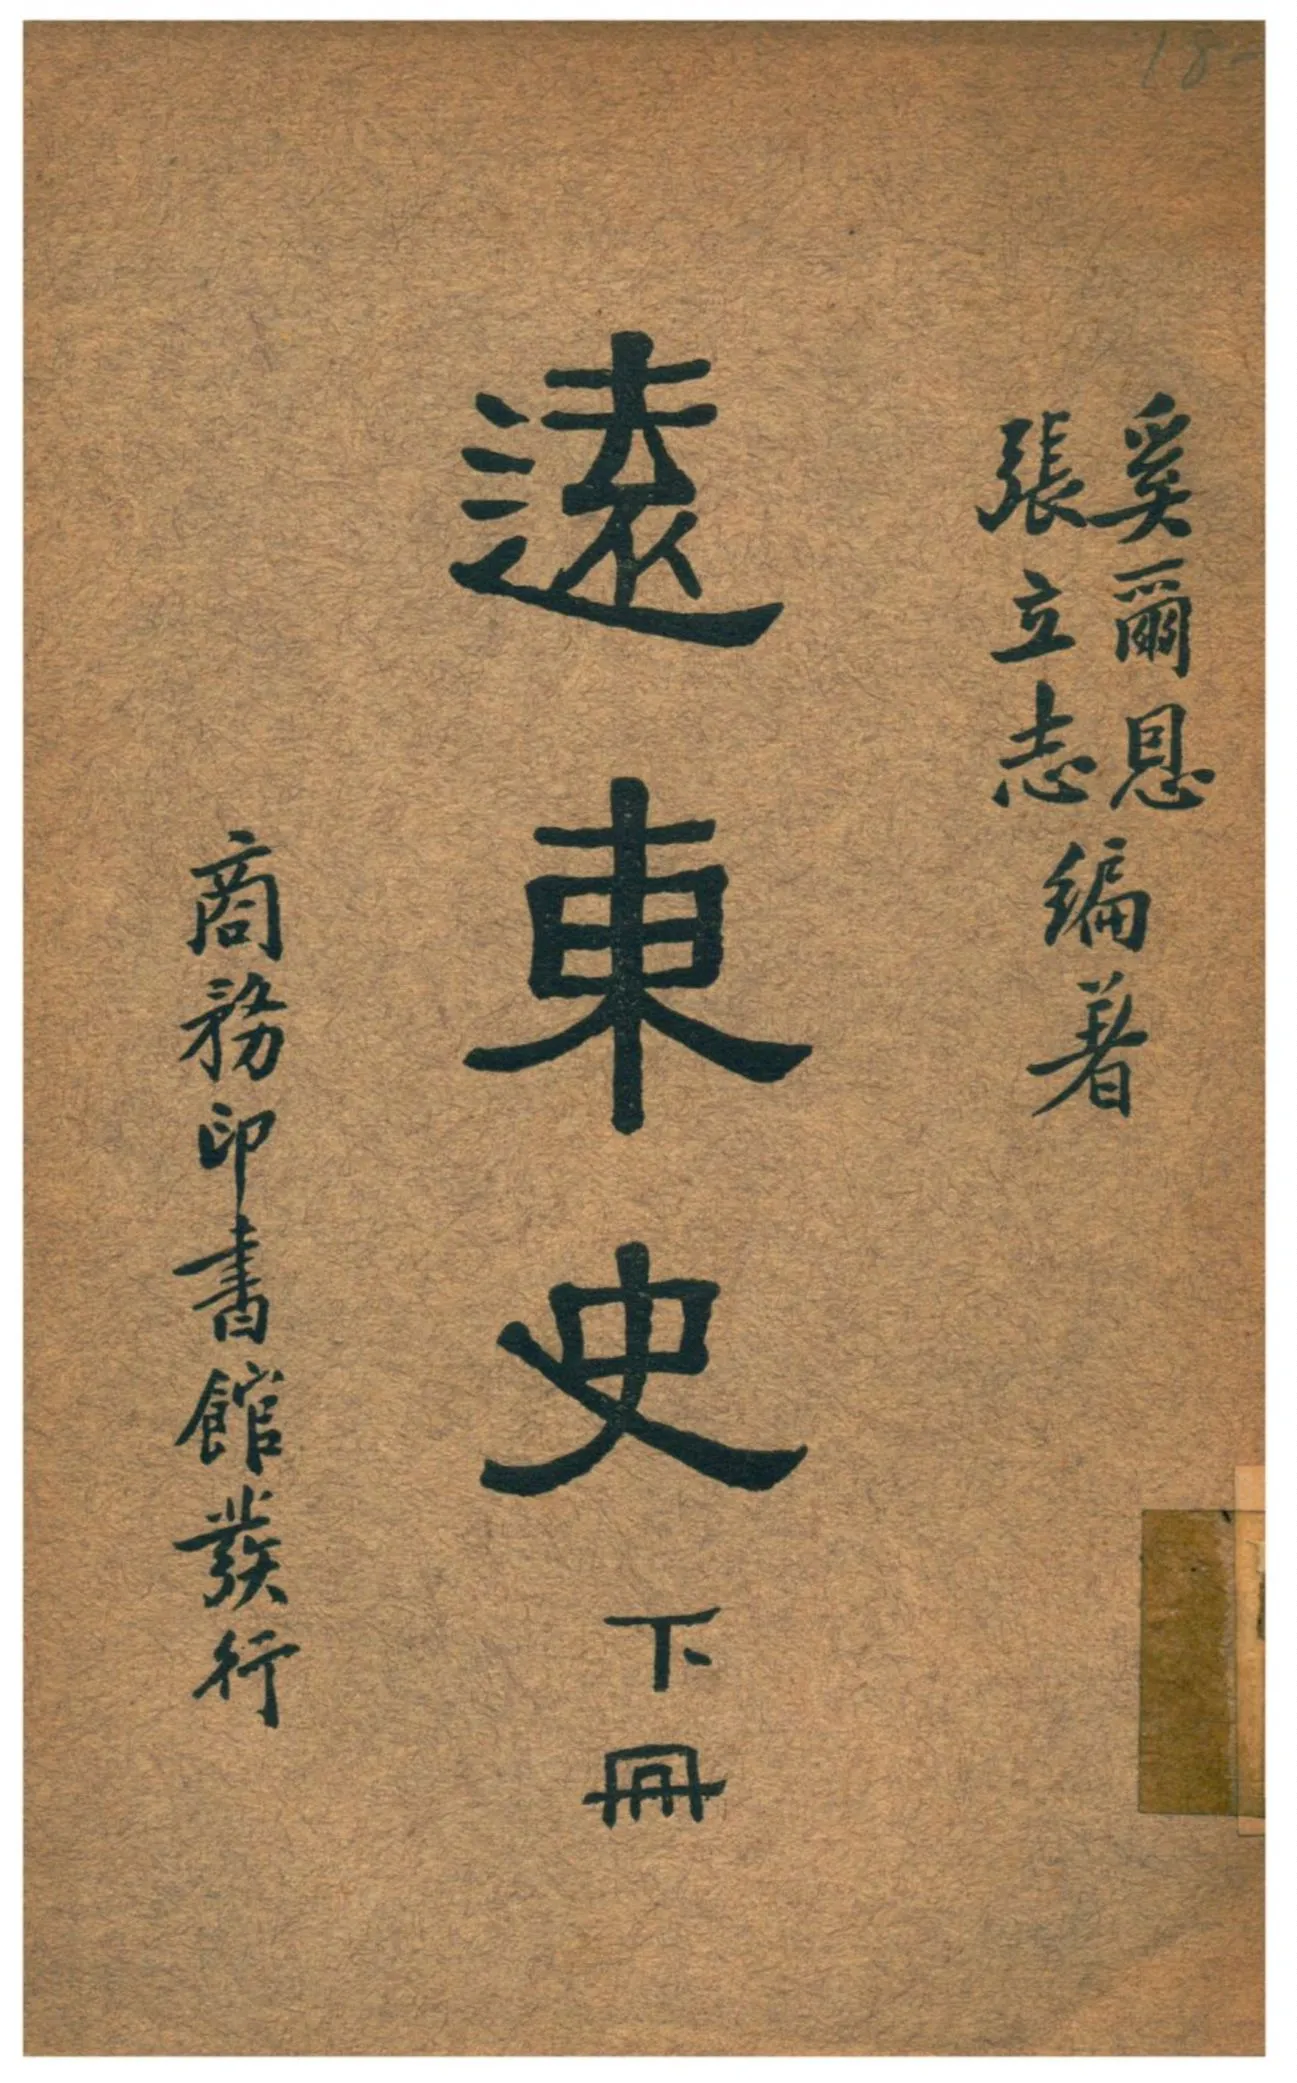 奚爾恩
張立志
編著
遠東史
下冊
商務印書館發行
18-